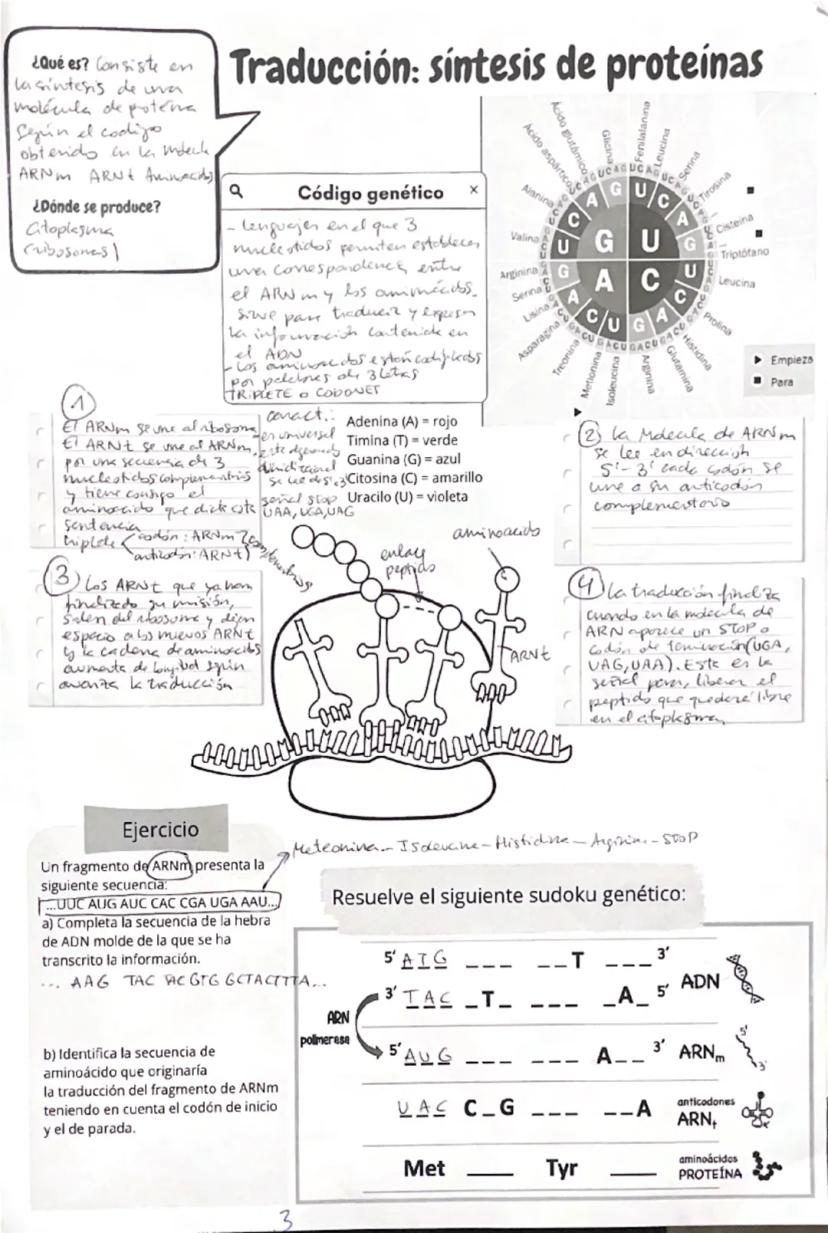 ¿Qué es? Consiste en
la síntesis de una
molécula de poteína
según el codigo
obtenido en la molecula
ARNm ARNt Aminoacidos
¿Dónde se produce?
Citoplasma
(ribosomas)
Traducción: síntesis de proteínas
Código genético ×
- lenguajes en el que 3
nucleotidos permiten establecer
una correspondencia entre
el ARNm y los aminoácidos.
sirve para traducir y expresar
la información contenida en
el ADN
- los aminoacidos estan codificados
por palabras de 3 letras
TRIPLETE o CODONET
Ácido aspártico
Ácido glutámico
Glicina
Fenilalanina
Leucina
Serina
Tirosina
Cisteína
Triptófano
Leucina
Prolina
Histidina
Glutamina
Arginina
Isoleucina
Metionina
Treonina
Asparagina
Lisina
Serina
Arginina
Valina
Alanina
G U
A C
Empieza
Para
1
El ARNm se une al ribosoma
El ARNt se une al ARNm,
por una secuencia de 3
nucleotidos complementarios
y tiene consigo el
aminoacido que dicta esta
sentencia
triplete codón: ARNm
anticodon: ARNt
complementarios
caract.:
es universal
este degenerado
unidireccional
se lee de 5'-3'
señal stop
UAA, UGA, UAG
Adenina (A) = rojo
Timina (T) = verde
Guanina (G) = azul
Citosina (C) = amarillo
Uracilo (U) = violeta
2 la Molecula de ARNm
se lee en dirección
5'-3' cada codón se
une a su anticodón
complementario
aminoacido
enlace
peptido
ARNt
3 Los ARNt que ya han
finalizado su misión,
salen del ribosoma y dejan
espacio a los nuevos ARNt
y la cadena de aminoacidos
aumenta de longitud según
avanza la traducción
4 la traducción finaliza
cuando en la molecula de
ARN aparece un STOP o
codón de terminación (UGA,
UAG, UAA). Este es la
señal para, liberar el
peptido que quedara libre
en el citoplasma,
Ejercicio
Meteonina - Isoleucina - Histidina - Arginina - STOP
Un fragmento de ARNm presenta la
siguiente secuencia:
...UUC AUG AUC CAC CGA UGA AAU...
a) Completa la secuencia de la hebra
de ADN molde de la que se ha
transcrito la información.
... AAG TAC TAG GTG GCTACTTTA...
b) Identifica la secuencia de
aminoácido que originaría
la traducción del fragmento de ARNm
teniendo en cuenta el codón de inicio
y el de parada.
Resuelve el siguiente sudoku genético:
5' ATG _ _ _ _ _ T _ _ _ 3'
3' TAC _ T _ _ _ _ _ A _ 5' ADN
ARN
polimerasa
5' AUG _ _ _ _ _ _ A _ _ 3' ARNm
5'
3'
UAC C _ G _ _ _ _ _ A anticodones
ARNt
Met ____ Tyr ____ aminoácidos
PROTEÍNA
3